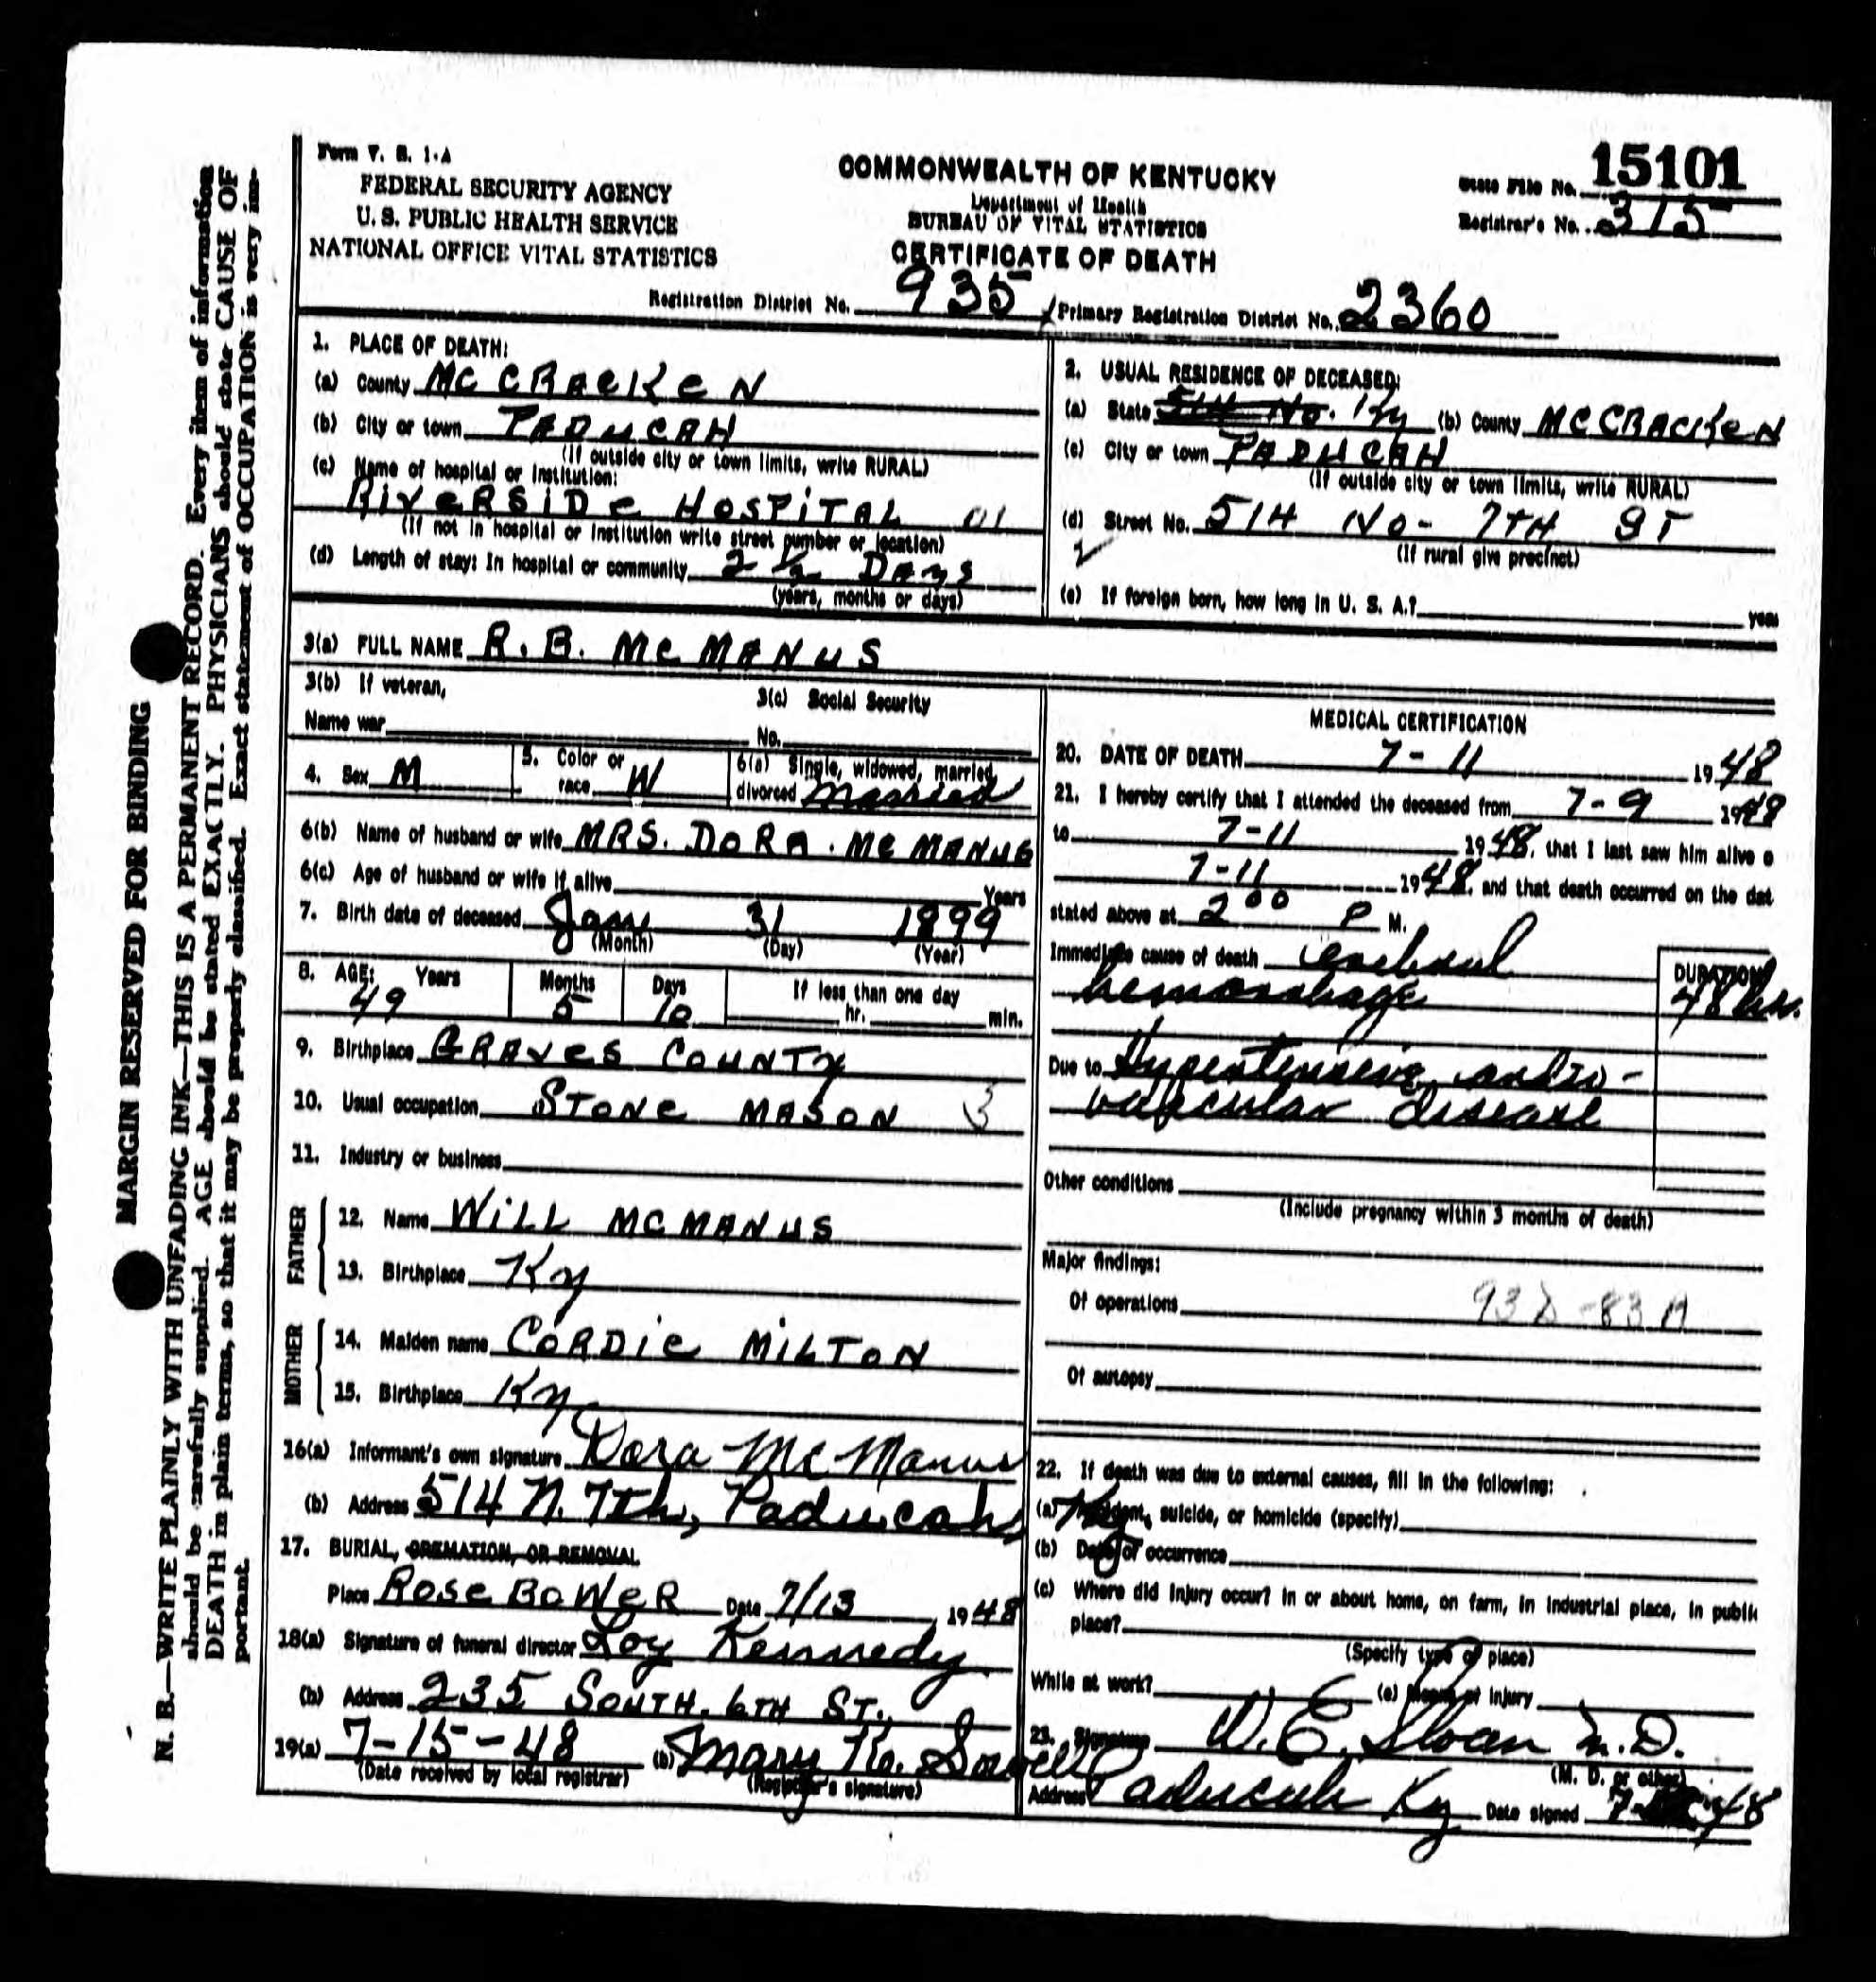 Form V. S. 1-A
FEDERAL SECURITY AGENCY
U. S. PUBLIC HEALTH SERVICE
NATIONAL OFFICE VITAL STATISTICS
COMMONWEALTH OF KENTUCKY
Department of Health
BUREAU OF VITAL STATISTICS
CERTIFICATE OF DEATH
State File No. 15101
Registrar's No. 315
Registration District No. 935
Primary Registration District No. 2360
1. PLACE OF DEATH:
(a) County McCRACKEN
(b) City or town PADUCAH
(If outside city or town limits, write RURAL)
(c) Name of hospital or institution:
RIVERSIDE HOSPITAL 01
(If not in hospital or institution write street number or location)
(d) Length of stay: In hospital or community 2 1/2 DAYS
(years, months or days)
2. USUAL RESIDENCE OF DECEASED:
(a) State 514 No. Ky (b) County McCRACKEN
(c) City or town PADUCAH
(If outside city or town limits, write RURAL)
(d) Street No. 514 No- 7TH ST
(If rural give precinct)
(e) If foreign born, how long in U. S. A.? years
3(a) FULL NAME R. B. McMANUS
3(b) If veteran,
Name war
3(c) Social Security
No.
4. Sex M
5. Color or
race W
6(a) Single, widowed, married,
divorced Married
6(b) Name of husband or wife MRS. DORA. McMANUS
6(c) Age of husband or wife if alive Years
7. Birth date of deceased Jan 31 1899
(Month) (Day) (Year)
8. AGE: Years Months Days If less than one day
49 5 10 hr. min.
9. Birthplace GRAVES COUNTY
10. Usual occupation STONE MASON 3
11. Industry or business
FATHER
12. Name WILL McMANUS
13. Birthplace Ky
MOTHER
14. Maiden name CORDIE MILTON
15. Birthplace Ky
16(a) Informant's own signature Dora McManus
(b) Address 514 N. 7th, Paducah, Ky
17. BURIAL, CREMATION, OR REMOVAL
Place ROSE BOWER Date 7/13, 1948
18(a) Signature of funeral director Loy Kennedy
(b) Address 235 SOUTH. 6TH ST.
19(a) 7-15-48 (b) Mary
(Date received by local registrar) (Registrar's signature)
MEDICAL CERTIFICATION
20. DATE OF DEATH 7-11 1948
21. I hereby certify that I attended the deceased from 7-9 1948
to 7-11 1948, that I last saw him alive o
7-11 1948, and that death occurred on the dat
stated above at 2 00 P M.
Immediate cause of death cerebral
hemorrhage
DURATION
48 hrs.
Due to Hypertensive cardio-
vascular disease
Other conditions
(Include pregnancy within 3 months of death)
Major findings:
Of operations 93D-83A
Of autopsy
22. If death was due to external causes, fill in the following:
(a) Accident, suicide, or homicide (specify)
(b) Date of occurrence
(c) Where did injury occur? In or about home, on farm, in industrial place, in public
place?
(Specify type of place)
While at work? (e) Means of injury
23. Signature W. E. Sloan M.D.
(M. D. or other)
Address Paducah Ky Date signed 48
MARGIN RESERVED FOR BINDING
N. B.—WRITE PLAINLY WITH UNFADING INK—THIS IS A PERMANENT RECORD. Every item of information
should be carefully supplied. AGE should be stated EXACTLY. PHYSICIANS should state CAUSE OF
DEATH in plain terms, so that it may be properly classified. Exact statement of OCCUPATION is very im-
portant.